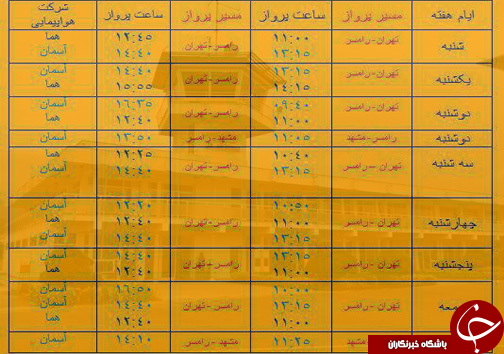 ایام هفته مسیر پرواز ساعت پرواز مسیر پرواز ساعت پرواز شرکت هواپیمایی
شنبه تهران-رامسر ۱۱:۰۰ رامسر-تهران ۱۲:۴۵ هما
۱۳:۱۵ ۱۴:۴۰ آسمان
یکشنبه تهران-رامسر ۱۳:۱۵ رامسر-تهران ۱۴:۴۰ آسمان
۱۴:۱۵ ۱۵:۵۵ هما
دوشنبه تهران-رامسر ۰۹:۴۰ رامسر-تهران ۱۶:۳۵ آسمان
۱۱:۰۰ ۱۲:۴۰ هما
دوشنبه رامسر-مشهد ۱۱:۰۵ مشهد-رامسر ۱۳:۵۰ آسمان
سه شنبه تهران-رامسر ۱۰:۴۰ رامسر-تهران ۱۲:۲۵ هما
۱۳:۱۵ ۱۴:۴۰ آسمان
چهارشنبه تهران-رامسر ۱۰:۵۰ رامسر-تهران آسمان
۱۱:۰۰ ۱۲:۴۰ هما
۱۳:۱۵ ۱۴:۴۰ آسمان
پنجشنبه تهران-رامسر ۱۳:۱۵ رامسر-تهران ۱۴:۴۰ آسمان
۱۱:۰۰ ۱۲:۴۰ هما
تهران-رامسر ۱۰:۰۰ رامسر-تهران ۱۶:۵۰ آسمان
۱۳:۱۵ ۱۴:۴۰ آسمان
۱۱:۰۰ ۱۲:۴۰ هما
۱۱:۲۵ مشهد-رامسر ۱۴:۱۰ آسمان
باشگاه خبرنگاران